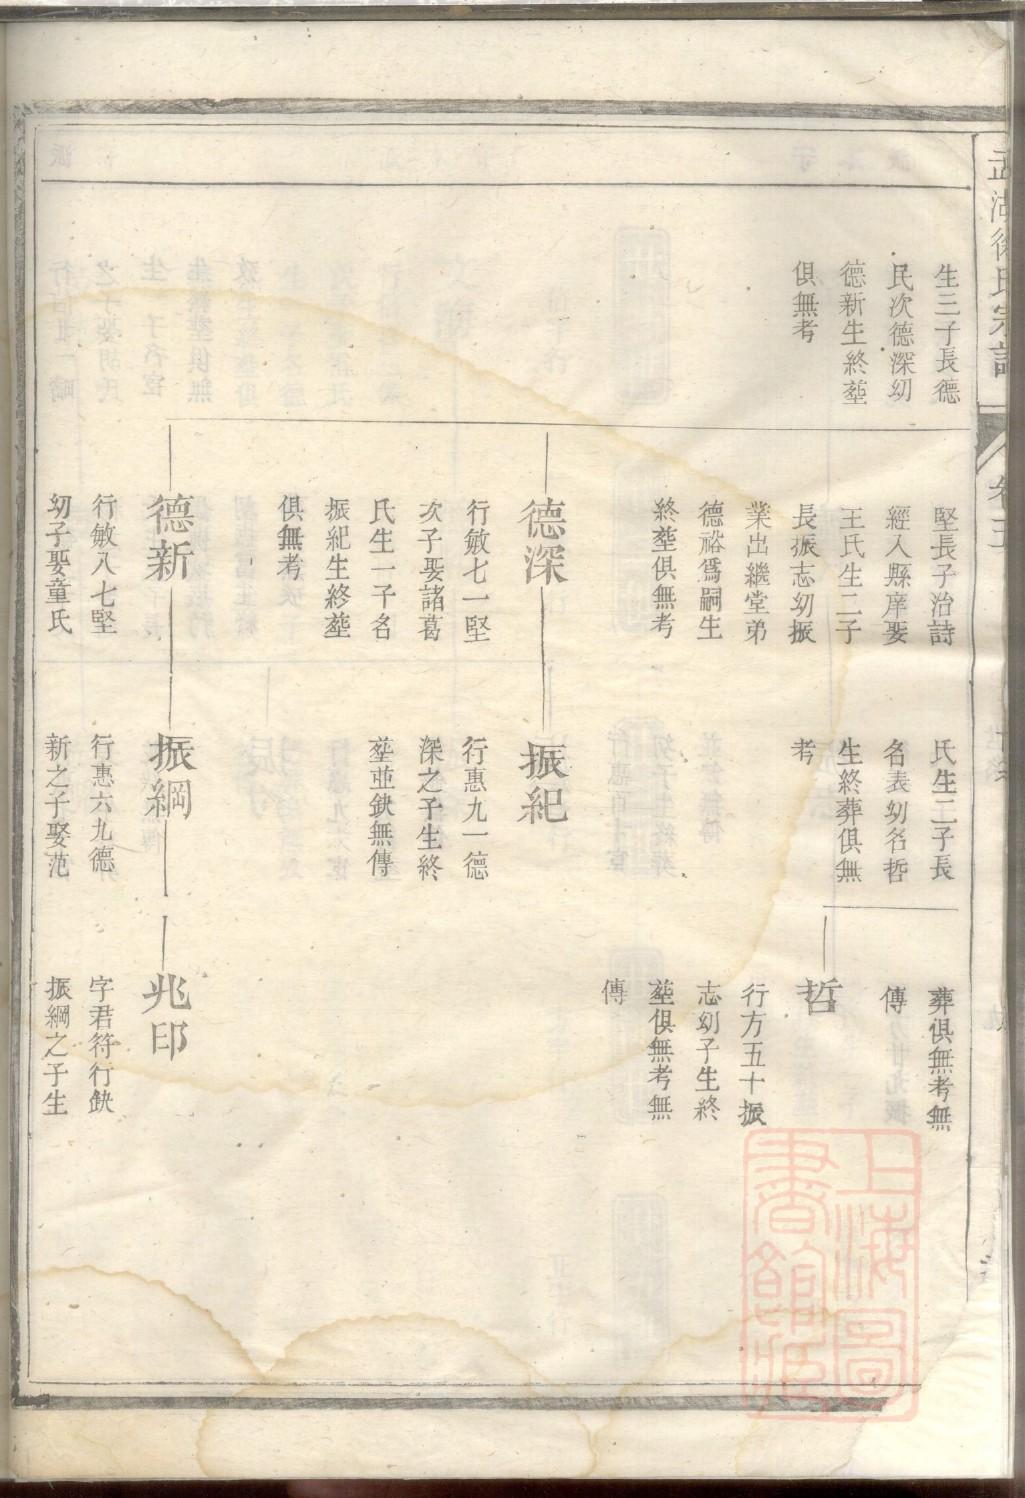 孟湖徐氏宗譜
卷五
生三子長德
民次德深幼
德新生終塟
俱無考
堅長子治詩
經入縣庠娶
王氏生二子
長振志幼振
業出繼堂弟
德裕爲嗣生
終塟俱無考
德深
行敏七一堅
次子娶諸葛
氏生一子名
振紀生終塟
俱無考
德新
行敏八七堅
幼子娶童氏
氏生二子長
名表幼名哲
生終葬俱無
考
振紀
行惠九一德
深之子生終
塟並缺無傳
振綱
行惠六九德
新之子娶范
葬俱無考無
傳
哲
行方五十振
志幼子生終
塟俱無考無
傳
兆印
字君符行缺
振綱之子生
上海圖
書館藏